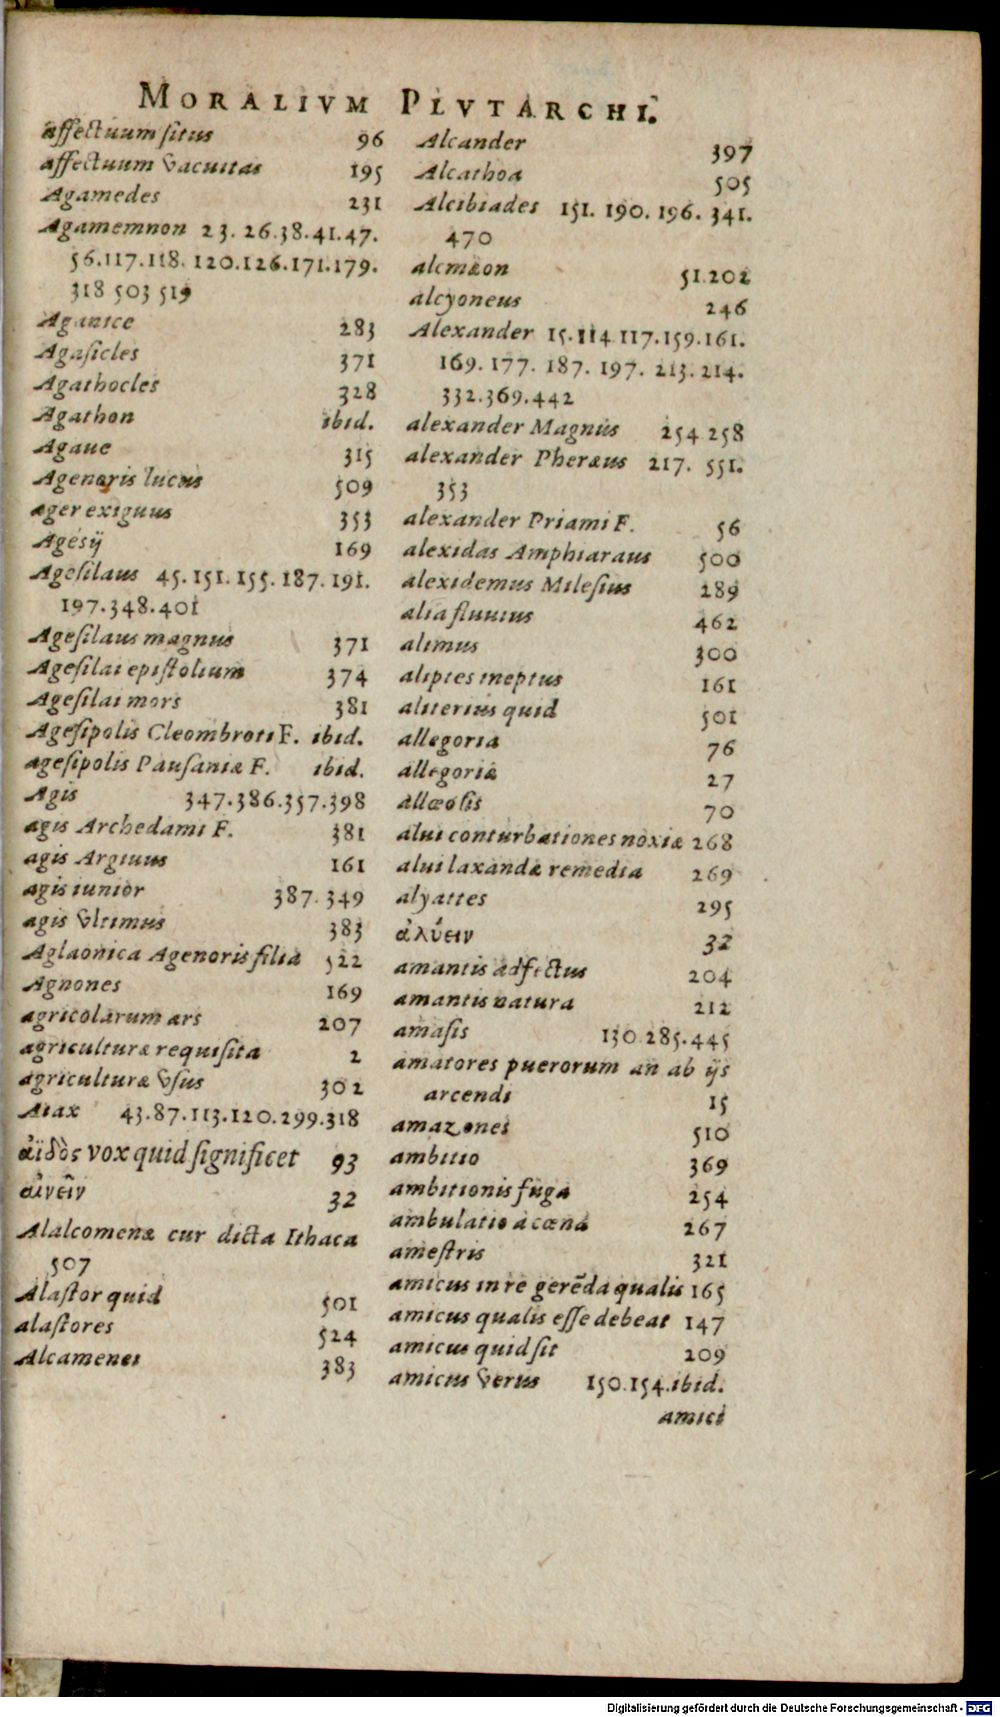 MORALIVM PLVTARCHI.
affectuum situs 96
affectuum vacuitas 195
Agamedes 231
Agamemnon 23. 26. 38. 41. 47.
56. 117. 118. 120. 126. 171. 179.
318 503 519
Aganice 283
Agasicles 371
Agathocles 328
Agathon ibid.
Agaue 315
Agenoris lucus 509
ager exiguus 353
Agesij 169
Agesilaus 45. 151. 155. 187. 191.
197. 348. 401
Agesilaus magnus 371
Agesilai epistolium 374
Agesilai mors 381
Agesipolis Cleombroti F. ibid.
agesipolis Pausaniæ F. ibid.
Agis 347. 386. 357. 398
agis Archedami F. 381
agis Argiuus 161
agis iunior 387. 349
agis vltimus 383
Aglaonica Agenoris filia 522
Agnones 169
agricolarum ars 207
agriculturæ requisita 2
agriculturæ vsus 302
Aiax 43. 87. 113. 120. 299. 318
ἀϊδὸς vox quid significet 93
αἰνεῖν 32
Alalcomenæ cur dicta Ithaca
507
Alastor quid 501
alastores 524
Alcamenes 383
Alcander 397
Alcathoa 505
Alcibiades 151. 190. 196. 341.
470
alcmæon 51. 202
alcyoneus 246
Alexander 15. 114 117. 159. 161.
169. 177. 187. 197. 213. 214.
332. 369. 442
alexander Magnus 254 258
alexander Pheræus 217. 551.
353
alexander Priami F. 56
alexidas Amphiaraus 500
alexidemus Milesius 289
alia fluuius 462
alimus 300
aliptes ineptus 161
aliterius quid 501
allegoria 76
allegoriæ 27
allœosis 70
alui conturbationes noxiæ 268
alui laxandæ remedia 269
alyattes 295
ἀλύειν 32
amantis adfectus 204
amantis natura 212
amasis 130. 285. 445
amatores puerorum an ab ijs
arcendi 15
amazones 510
ambitio 369
ambitionis fuga 254
ambulatio à cœna 267
amestris 321
amicus in re gerẽda qualis 165
amicus qualis esse debeat 147
amicus quid sit 209
amicus verus 150. 154. ibid.
amici
Digitalisierung gefördert durch die Deutsche Forschungsgemeinschaft - DFG